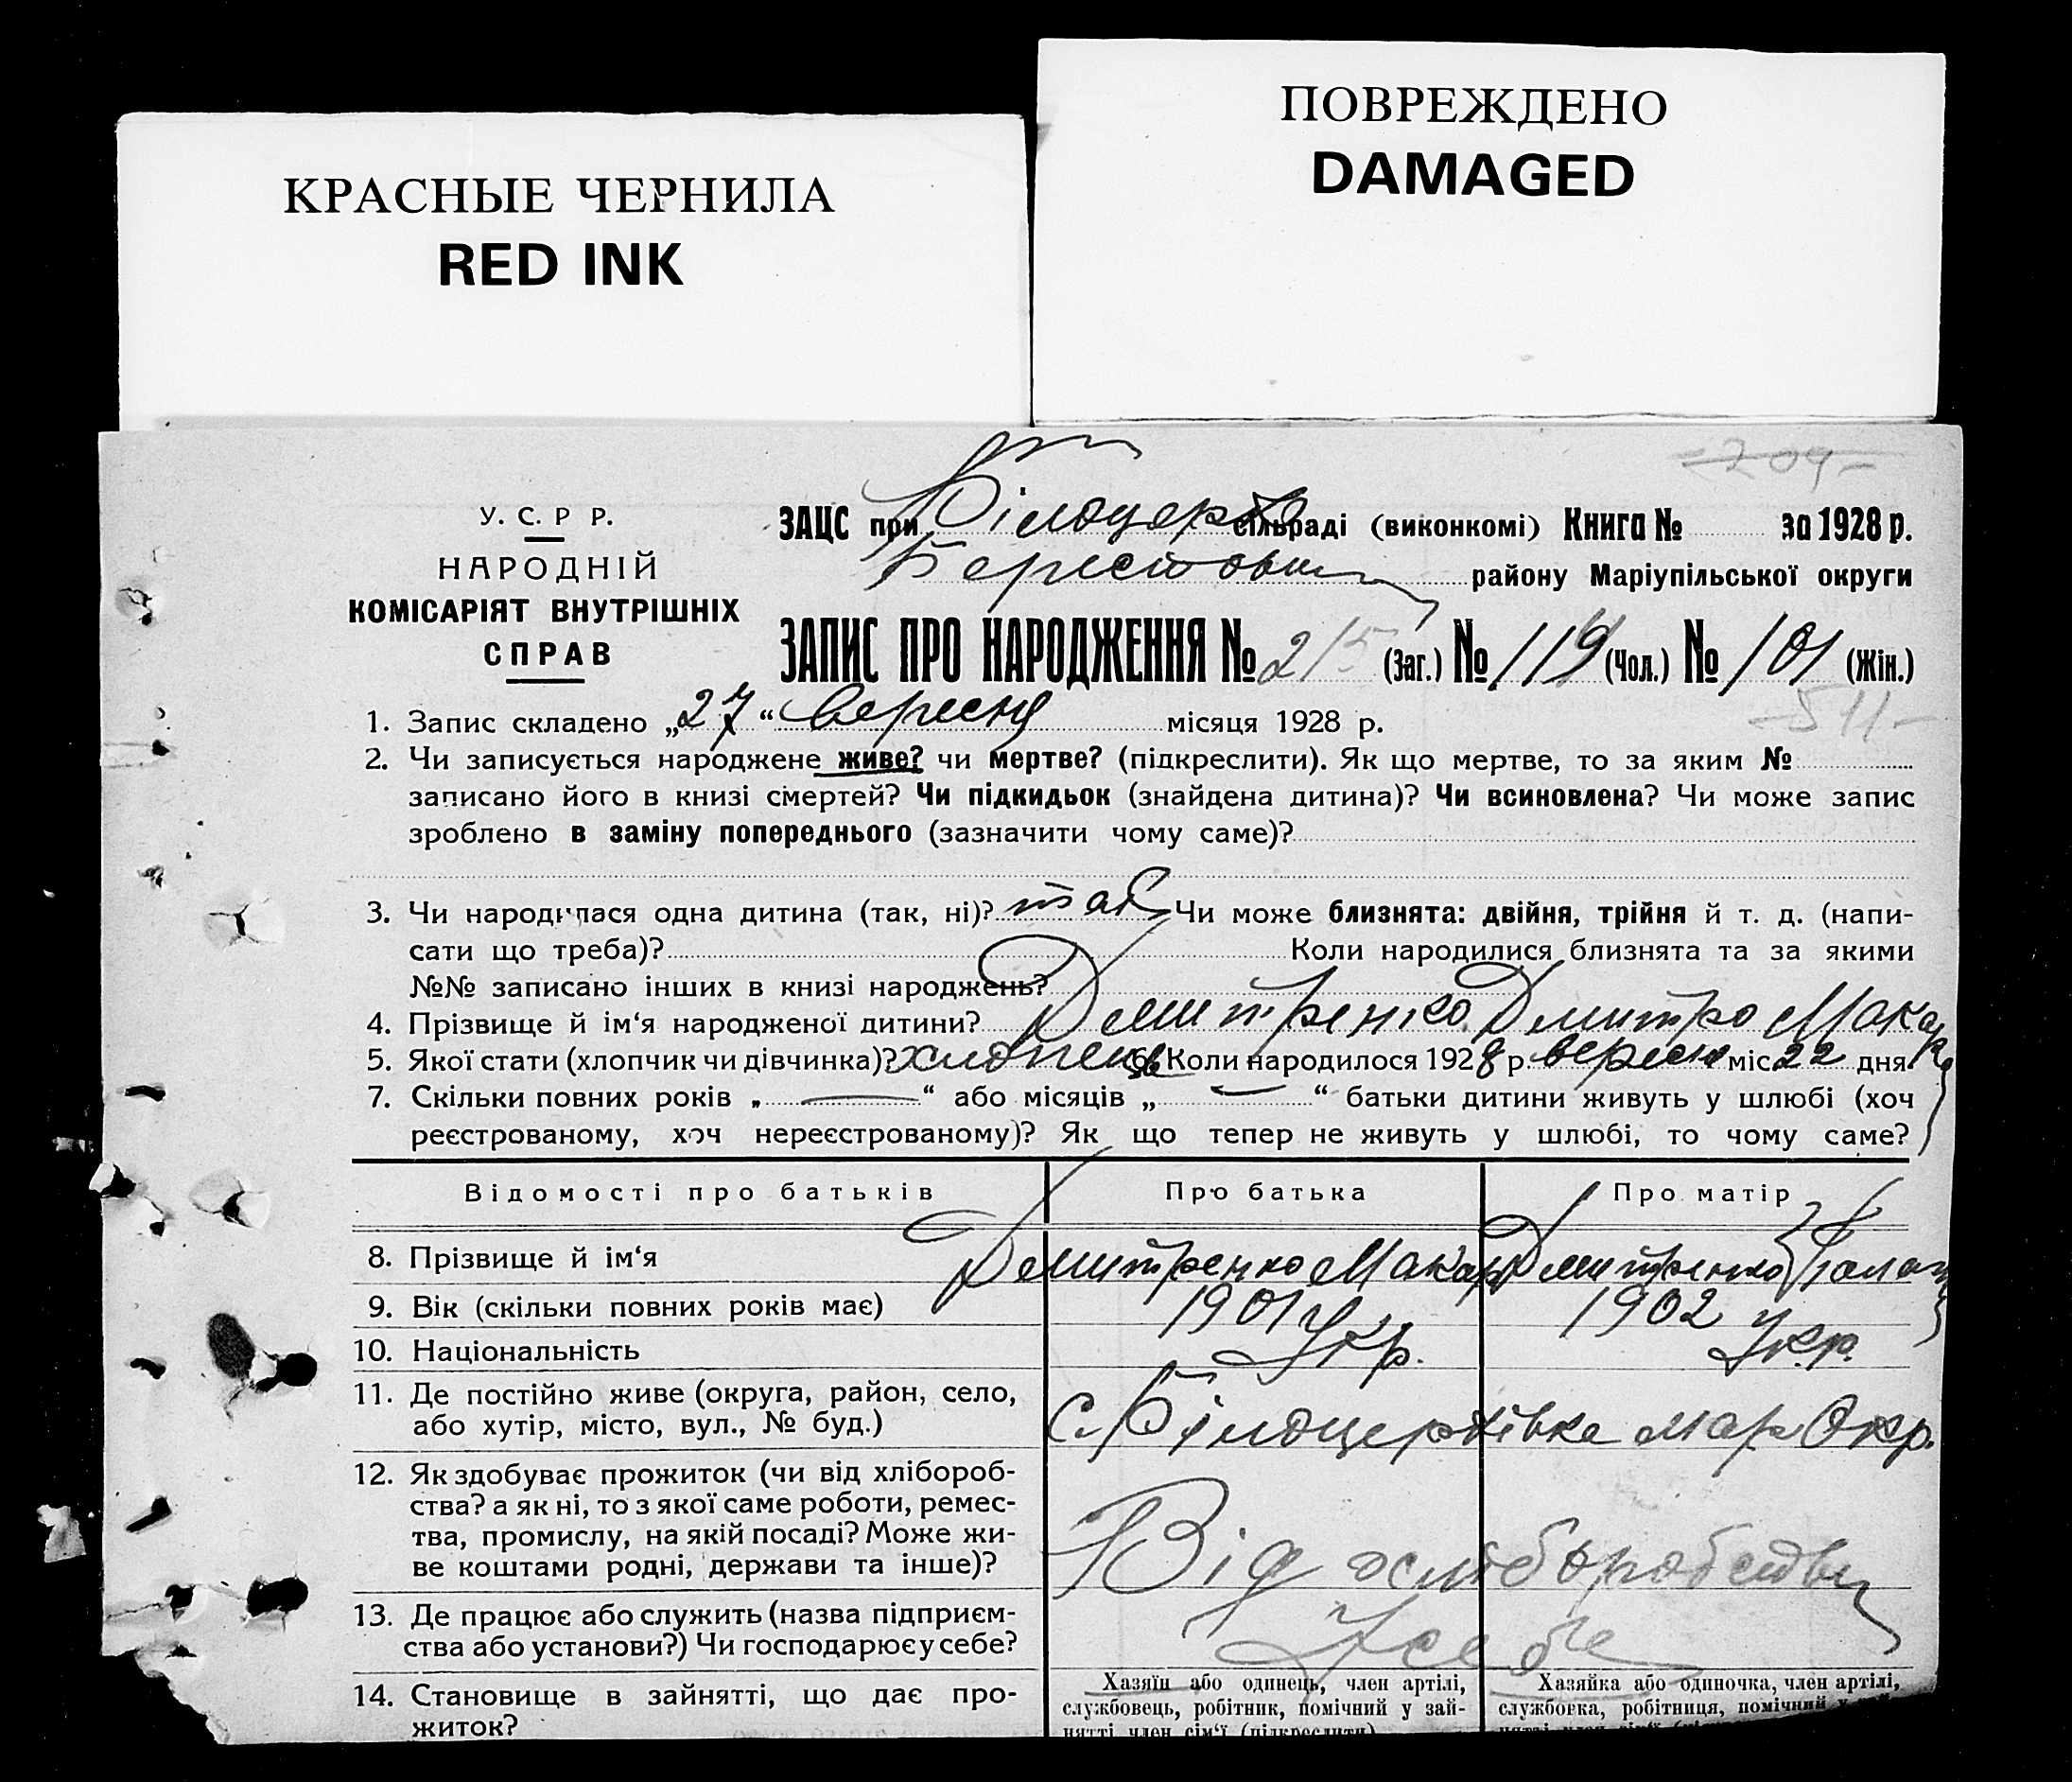 ПОВРЕЖДЕНО
DAMAGED
КРАСНЫЕ ЧЕРНИЛА
RED INK
-209-
У. С. Р Р.
НАРОДНІЙ
КОМІСАРІЯТ ВНУТРІШНІХ
СПРАВ
ЗАЦС при Білоцерк. сільраді (виконкомі) Книга № за 1928 р.
Берестов району Маріупільської округи
ЗАПИС ПРО НАРОДЖЕННЯ № 215 (Заг.) № 119 (Чол.) № 101 (Жін.)
-511-
1. Запис складено „27“ вересня місяця 1928 р.
2. Чи записується народжене живе? чи мертве? (підкреслити). Як що мертве, то за яким №
записано його в книзі смертей? Чи підкидьок (знайдена дитина)? Чи всиновлена? Чи може запис
зроблено в заміну попереднього (зазначити чому саме)?
3. Чи народилася одна дитина (так, ні)? так Чи може близнята: двійня, трійня й т. д. (напи-
сати що треба)? Коли народилися близнята та за якими
№№ записано інших в книзі народжень?
4. Прізвище й ім‘я народженої дитини? Дмитренко Дмитро Макар
5. Якої стати (хлопчик чи дівчинка)? хлопець 6. Коли народилося 1928 р. вересня міс 22 дня
7. Скільки повних років „ — “ або місяців „ — “ батьки дитини живуть у шлюбі (хоч
реєстрованому, хоч нереєстрованому)? Як що тепер не живуть у шлюбі, то чому саме?
Відомості про батьків Про батька Про матір
8. Прізвище й ім‘я Дмитренко Макар Дмитренко
9. Вік (скільки повних років має) 1901 1902
10. Національність Укр. Укр.
11. Де постійно живе (округа, район, село,
або хутір, місто, вул., № буд.) с. Білоцерківка Мар Окр.
12. Як здобуває прожиток (чи від хлібороб-
ства? а як ні, то з якої саме роботи, ремес-
тва, промислу, на якій посаді? Може жи-
ве коштами родні, держави та інше)? Від хліборобства
13. Де працює або служить (назва підприєм-
ства або установи?) Чи господарює у себе? У себе
14. Становище в зайнятті, що дає про-
житок?
Хазяїн або одинець, член артілі,
службовець, робітник, помічний у зай-
нятті член сім‘ї (підкреслити)
Хазяйка або одиночка, член артілі,
службовка, робітниця, помічний у зай-